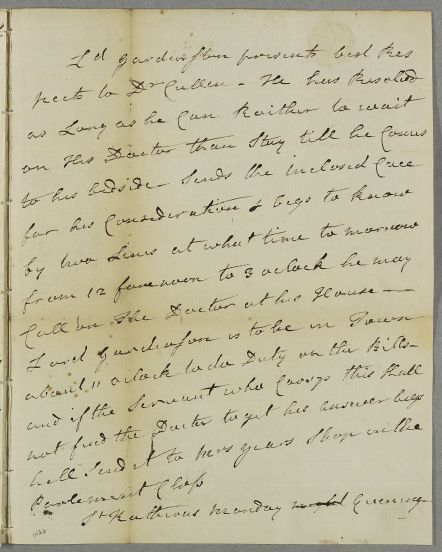 Ld Gardenston presents best Res
pects to Dr Cullen - He has Resolvd
as Long as he Can Raither to wait
on His Doctor than Stay till he Comes
to his bedside - Sends the inclosed Case
for his Consideration & begs to know
by two Lines at what time to morrow
from 12 forenoon to 3 oclock he may
Call on The Doctor at his House —
Lord Gardenston is to be in Town
about 11 oclock to do Duty on the Bills -
and if the Servant who Carrys this Shall
not find the Doctor to get his answer begs
hell Send it to years Shop in the
Parlement Closs
St Katrines Monday Evening -
1026